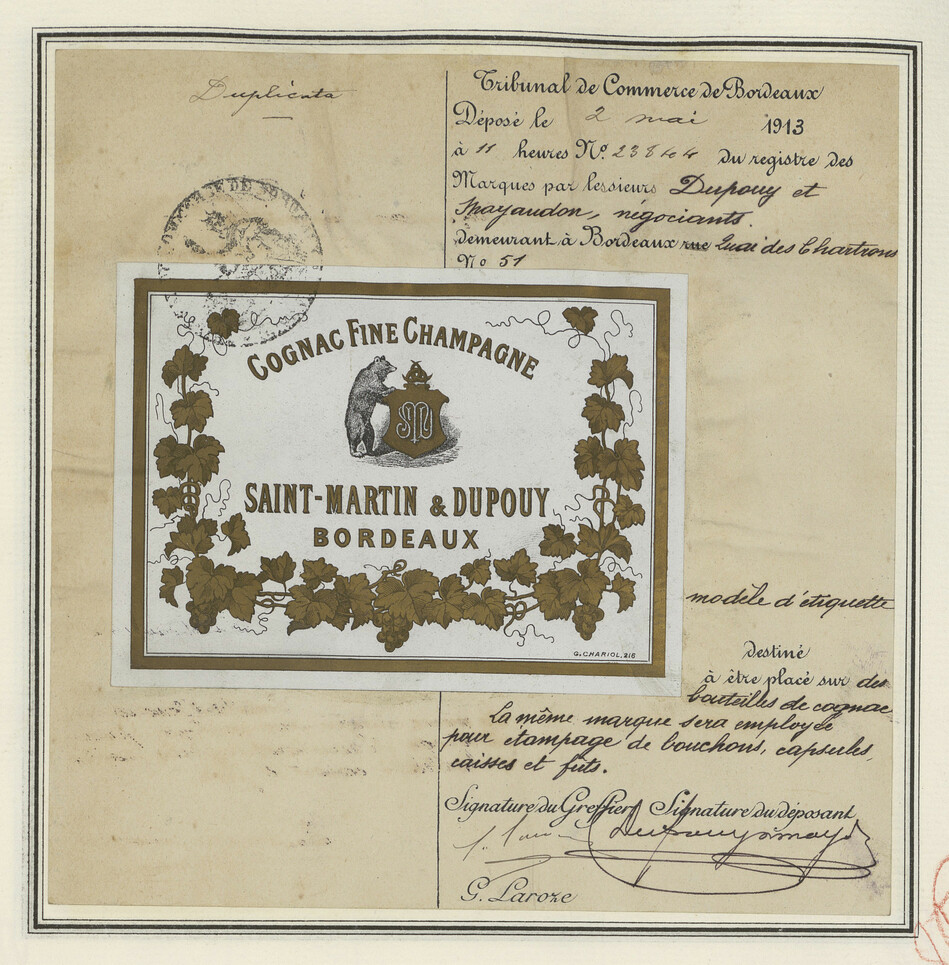 Duplicata
Tribunal de Commerce de Bordeaux
Déposé le 2 mai 1913
à 11 heures No. 23844 du registre des
Marques par les sieurs Dupouy et
Mayaudon, négociants.
demeurant à Bordeaux rue Quai des Chartrons
No 51
COGNAC FINE CHAMPAGNE
SM
SAINT-MARTIN & DUPOUY
BORDEAUX
G. CHARIOL, 216
modèle d'étiquette
destiné
à être placé sur des
bouteilles de cognac
La même marque sera employée
pour étampage de bouchons, capsules,
caisses et fûts.
Signature du Greffier Signature du déposant
G. Laroze